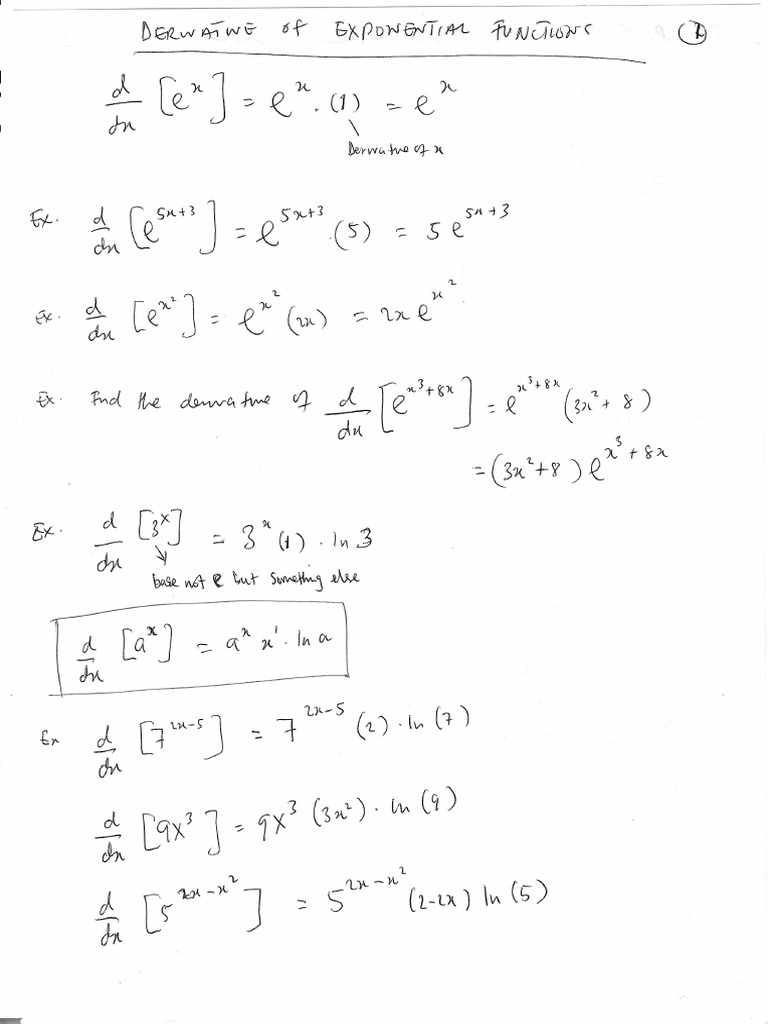 DERIVATIVE of EXPONENTIAL FUNCTIONS 1
d/dx [e^x] = e^x . (1) = e^x
Derivative of x
Ex. d/dx [e^(5x+3)] = e^(5x+3) . (5) = 5e^(5x+3)
Ex. d/dx [e^(x^2)] = e^(x^2) (2x) = 2x e^(x^2)
Ex. Find the derivative of d/dx [e^(x^3+8x)] = e^(x^3+8x) (3x^2+8)
= (3x^2+8) e^(x^3+8x)
Ex. d/dx [3^x] = 3^x (1) . ln 3
base not e but something else
d/dx [a^x] = a^x x' . ln a
Ex d/dx [7^(2x-5)] = 7^(2x-5) (2) . ln (7)
d/dx [9x^3] = 9x^3 (3x^2) . ln (9)
d/dx [5^(2x-x^2)] = 5^(2x-x^2) (2-2x) ln (5)